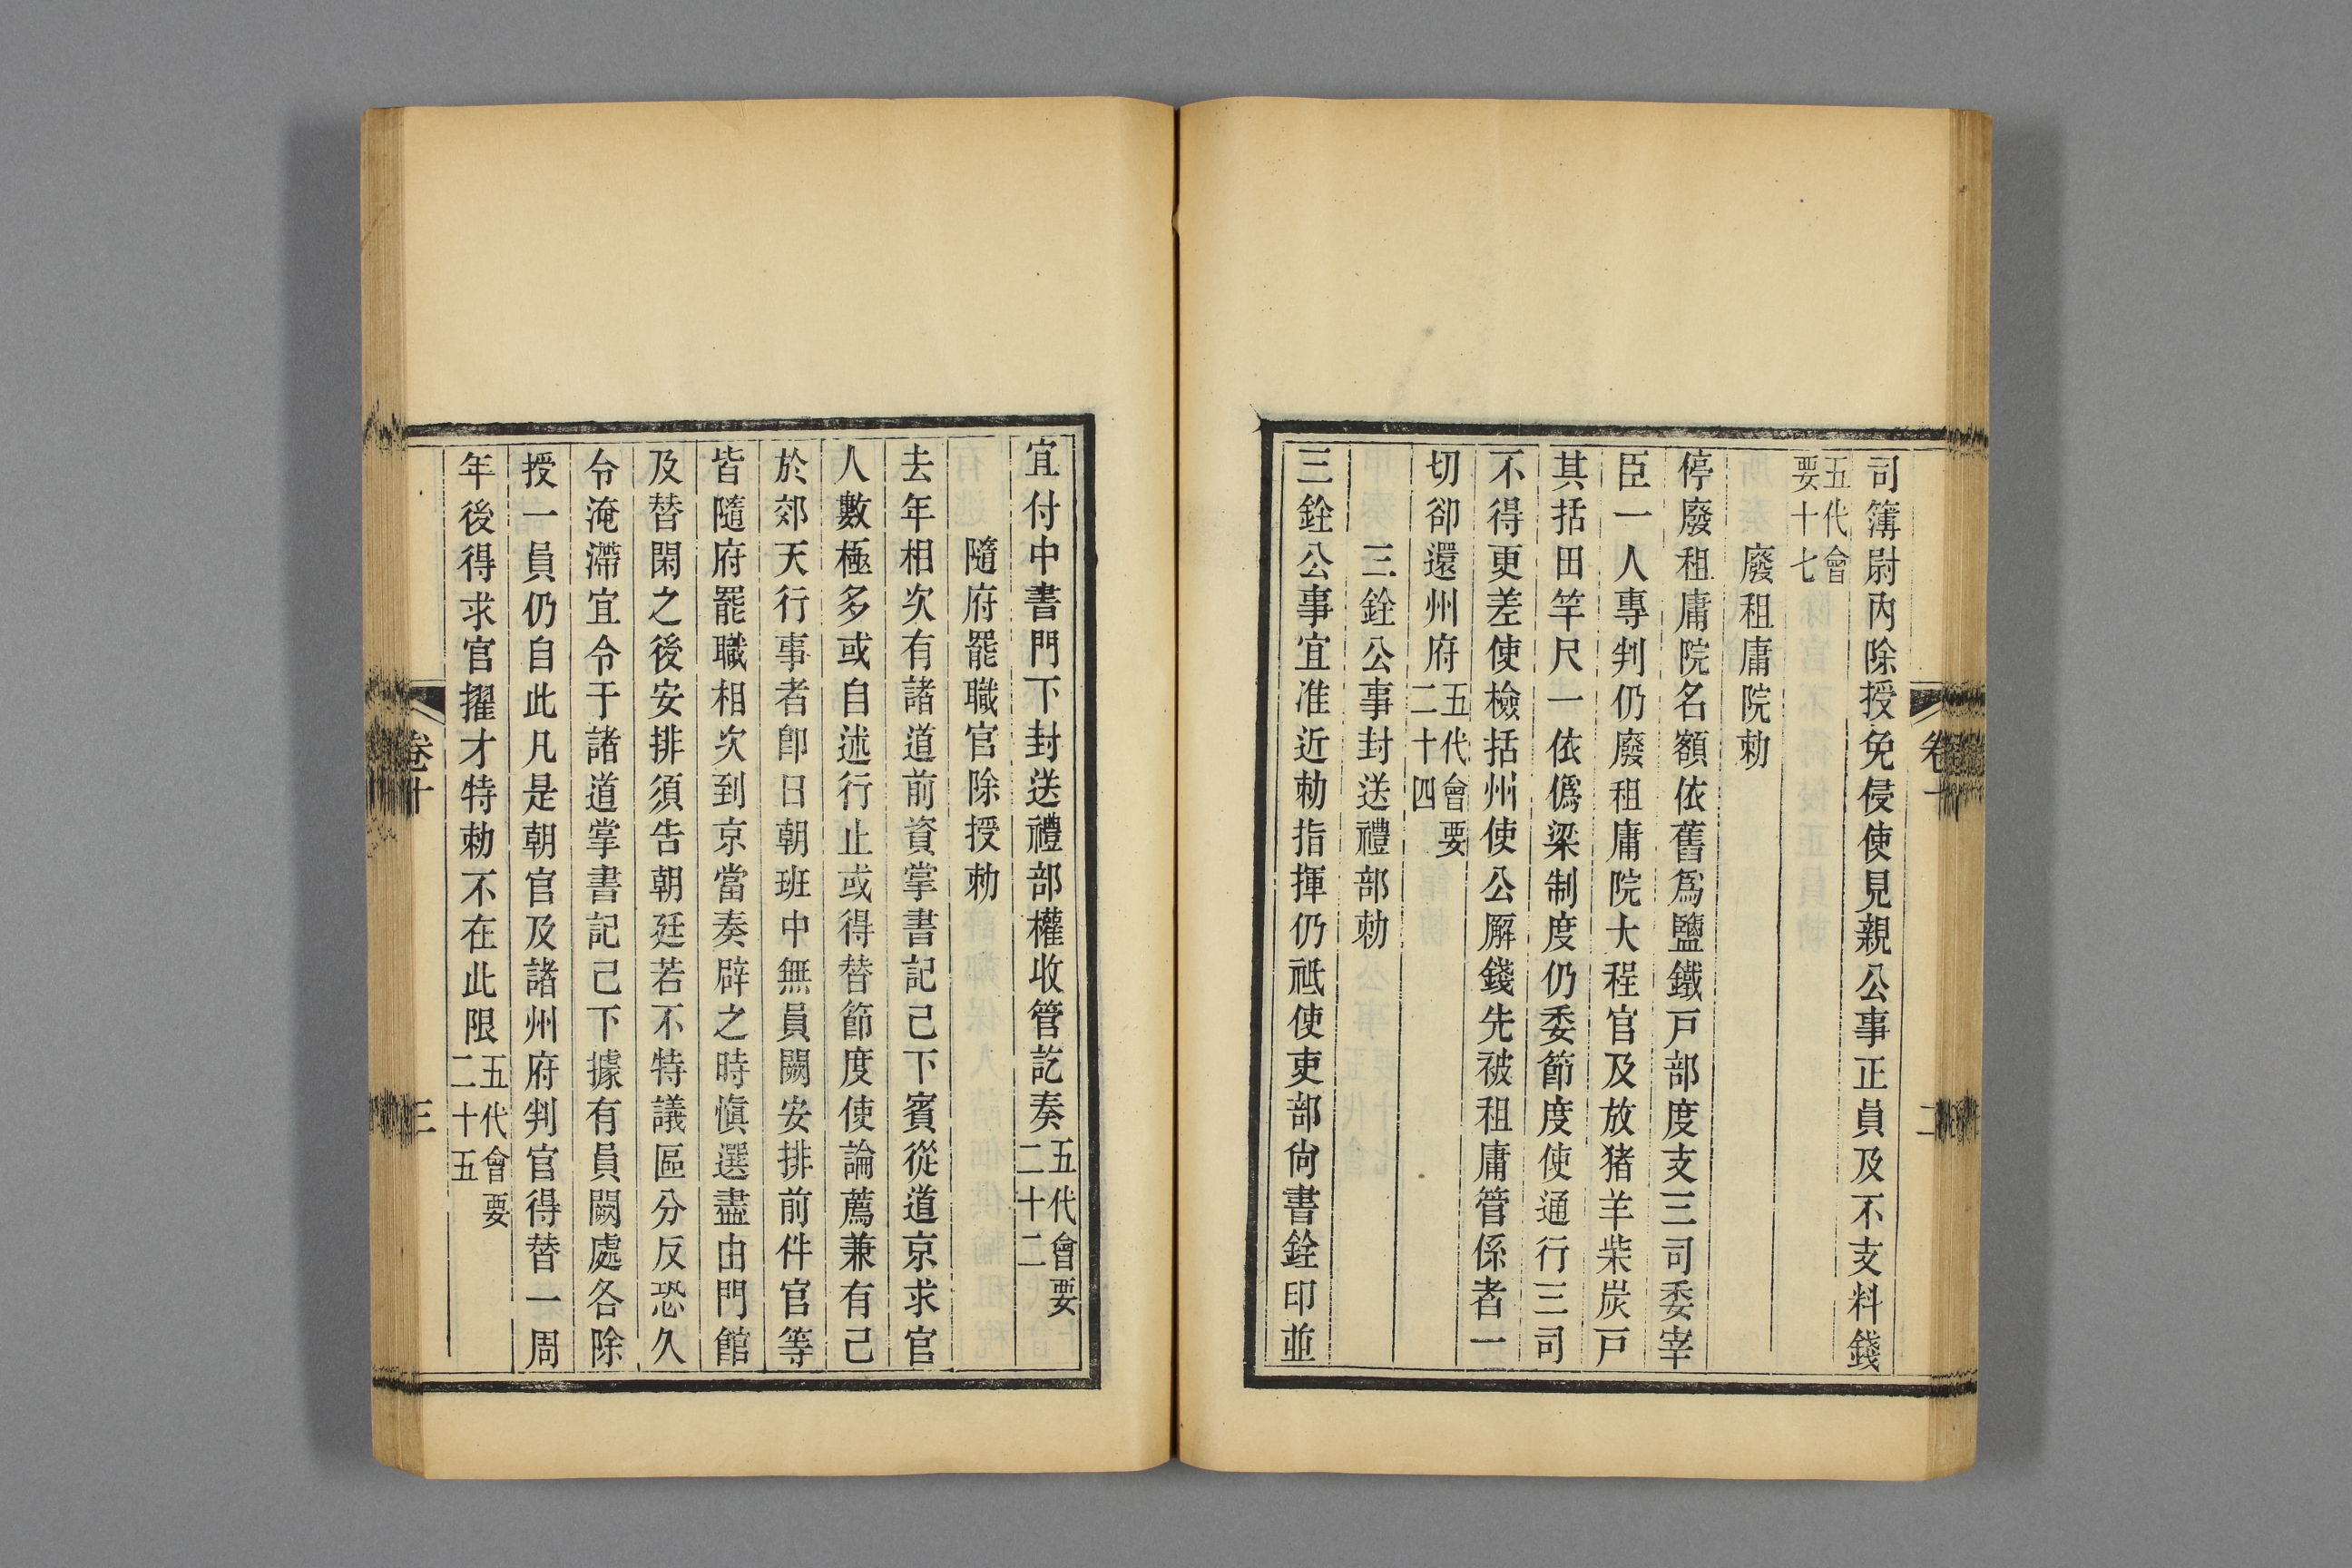 司簿尉內除授免侵使見親公事正員及不支料錢
五代會
要十七
廢租庸院勑
停廢租庸院名額依舊爲鹽鐵戸部度支三司委宰
臣一人專判仍廢租庸院大程官及放猪羊柴炭戸
其括田竿尺一依僞梁制度仍委節度使通行三司
不得更差使檢括州使公廨錢先被租庸管係者一
切卻還州府五代會要
二十四
三銓公事封送禮部勑
三銓公事宜准近勑指揮仍祗使吏部尙書銓印並
宜付中書門下封送禮部權收管訖奏五代會要
二十二
隨府罷職官除授勑
去年相次有諸道前資掌書記已下賓從道京求官
人數極多或自述行止或得替節度使論薦兼有已
於郊天行事者卽日朝班中無員闕安排前件官等
皆隨府罷職相次到京當奏辟之時愼選盡由門館
及替閑之後安排須告朝廷若不特議區分反恐久
令淹滯宜令于諸道掌書記已下據有員闕處各除
授一員仍自此凡是朝官及諸州府判官得替一周
年後得求官擢才特勑不在此限五代會要
二十五
卷十
三